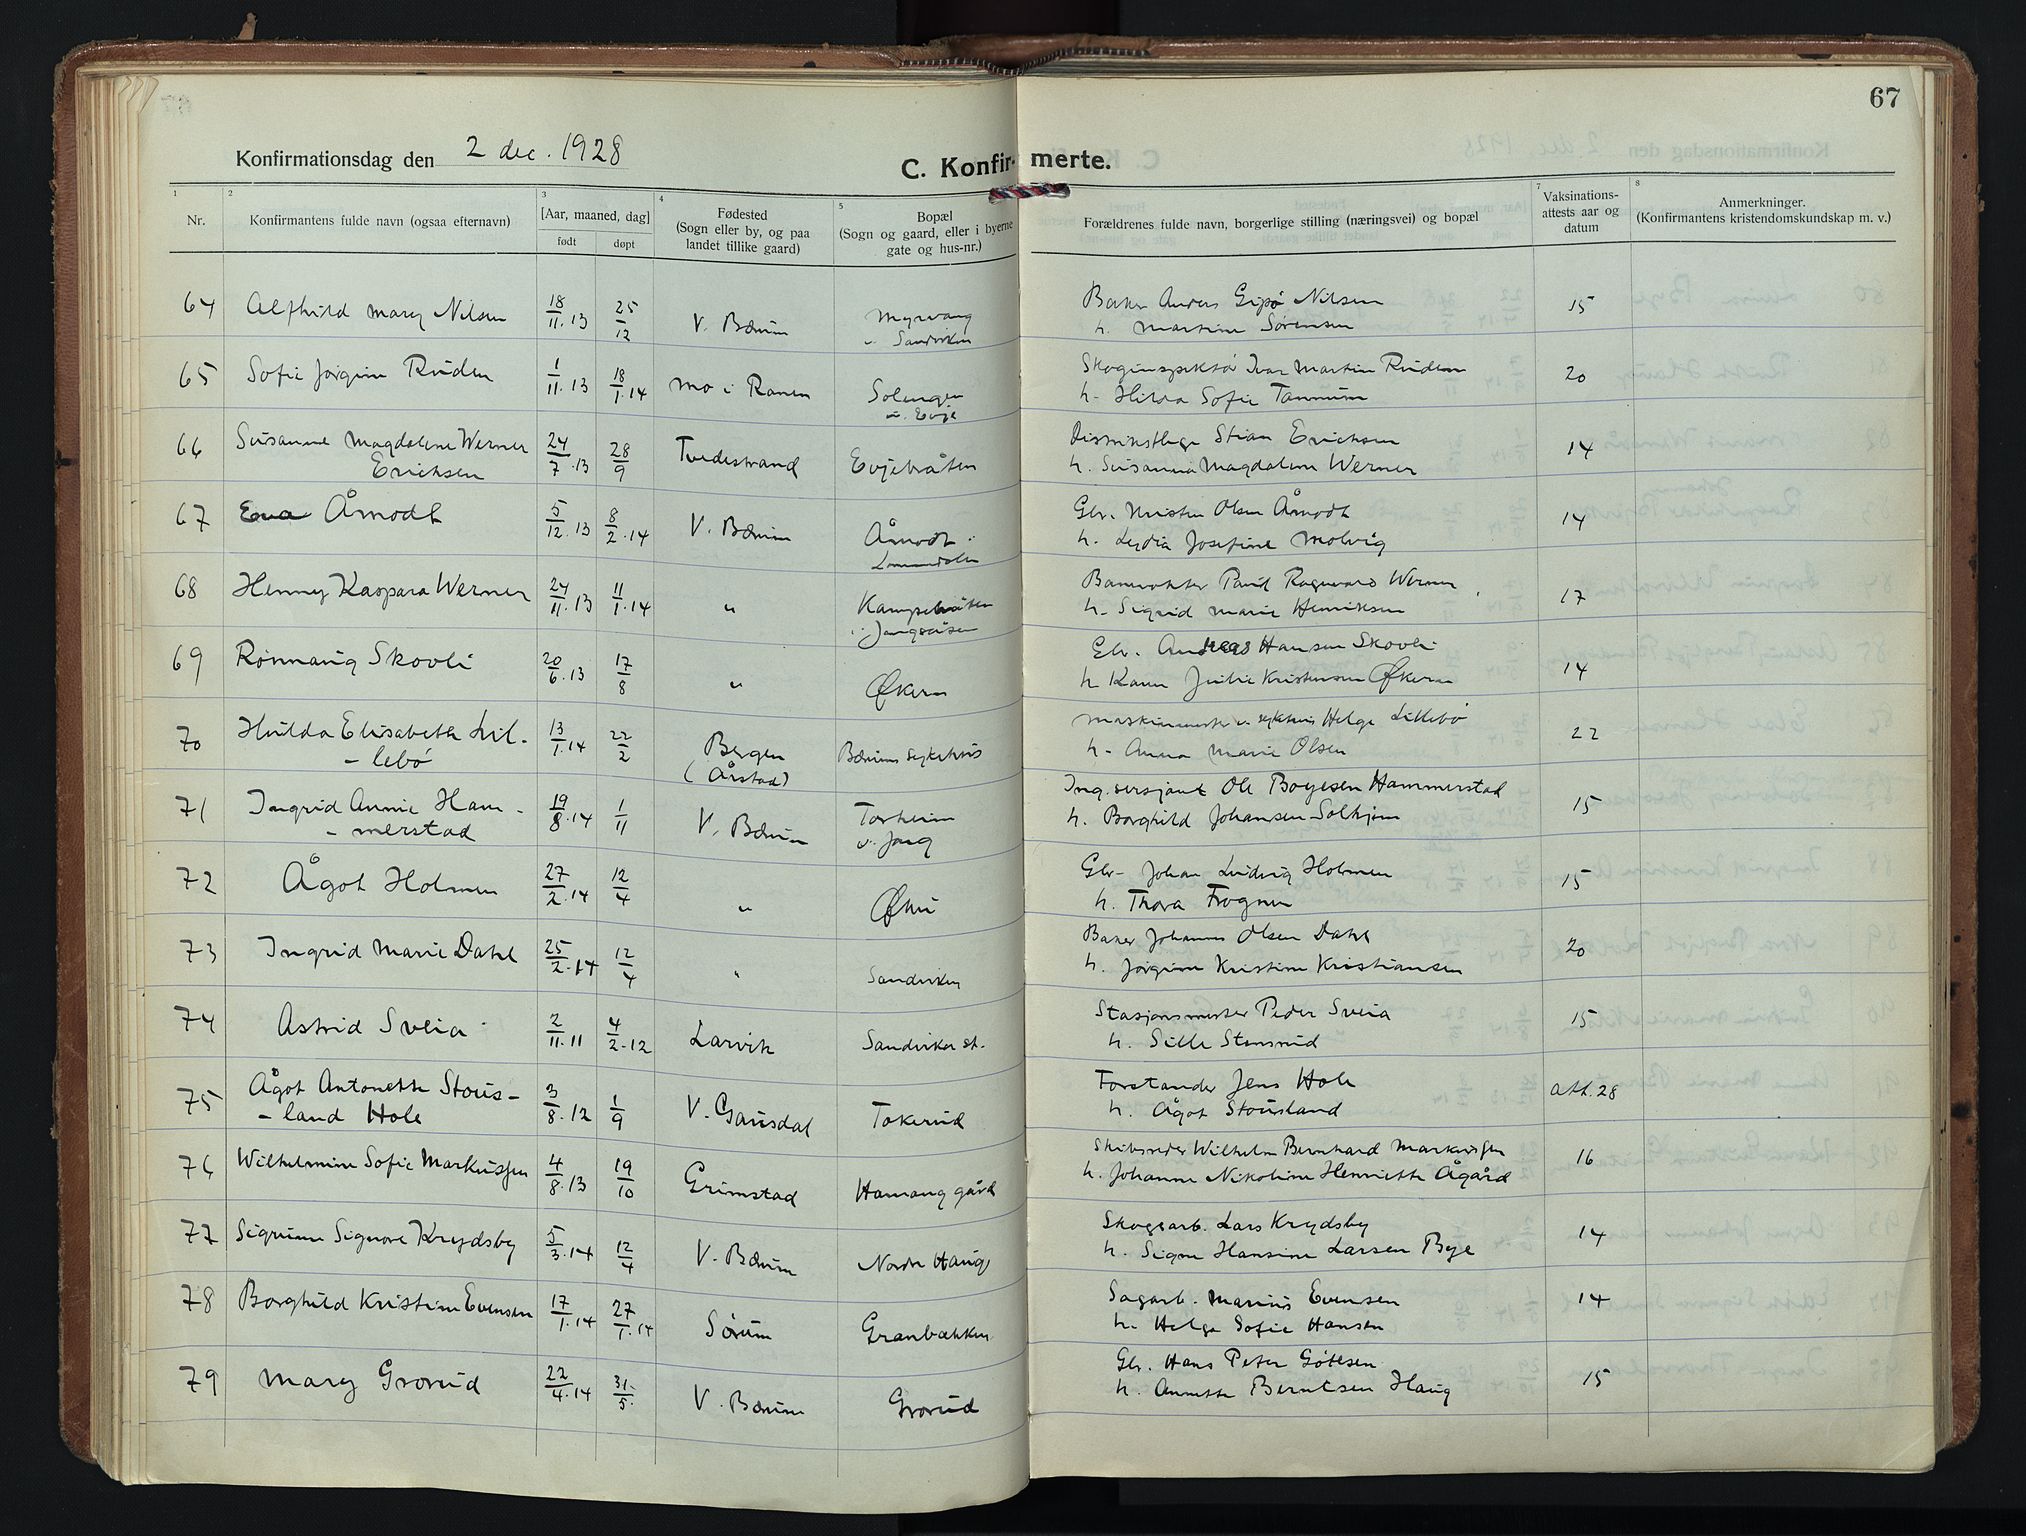 67
Konfirmationsdag den 2 dec. 1928
C. Konfirmerte.
1 2 3 4 5 7 8
Nr.
Konfirmantens fulde navn (ogsaa efternavn)
[Aar, maaned, dag]
født døpt
Fødested
(Sogn eller by, og paa
landet tillike gaard)
Bopæl
(Sogn og gaard, eller i byerne
gate og hus-nr.)
Forældrenes fulde navn, borgerlige stilling (næringsvei) og bopæl
Vaksinations-
attests aar og
datum
Anmerkninger.
(Konfirmantens kristendomskundskap m. v.)
64 Alfhild Mary Nilsen 18/11.13 25/12 V. Bærum Myrvang Baker Anders Nilsen 15
v Sandviken h. Martine Sørensen
65 Sofie Jørgine Ruden 1/11.13 18/1.14 Mo i Ranen Solungen Skoginspektør Ivar Martin Ruden 20
v. Evje h. Hilda Sofie Tannum
66 Susanne Magdalene Werner 24/7.13 28/9 Tvedestrand Evjebråten Distriktslege Stian Ericksen 14
Ericksen h. Susanna Magdalene Werner
67 Eva Åmodt 5/12.13 8/2.14 V. Bærum Åmodt i Gbr. Kristen Olsen Åmodt 14
Lommedalen h. Lydia Josefine Molvig
68 Henny Kaspara Werner 24/11.13 11/1.14 " Kampebråten Banevokter Paul Ragnvard Werner 17
h. Sigrid Marie Henriksen
69 Rønnaug Skovli 20/6.13 17/8 " Økern Elv. Andreas Hansen Skovli 14
h Karen Julie Kristensen Økern
70 Hulda Elisabeth Lil- 13/1.14 22/2 Bergen Bærums sykehus Maskinmester v. sykehus Helge Lillebø 22
- lebø (Årstad) h. Anna Marie Olsen
71 Ingrid Annie Ham- 19/8.14 1/11 V. Bærum Torheim Ing. sersjant Ole Boyesen Hammerstad 15
- merstad v. Jong h. Borghild Johansen Solhjem
72 Ågot Holmen 27/2.14 12/4 " Gbr. Johan Ludvig Holmen 15
h. Thora Frogner
73 Ingrid Marie Dahl 25/2.14 12/4 " Sandviken Baker Johannes Olsen Dahl 20
h. Jørgine Kristine Kristiansen
74 Astrid Sveia 2/11.11 4/2.12 Larvik Sandviken st. Stasjonsmester Peder Sveia 15
h. Sille Stensrud
75 Ågot Antonette Stous- 3/8.12 1/9 V. Gausdal Tokerud Forstander Jens Hole att. 28
- land Hole h. Ågot Stousland
76 Wilhelmine Sofie Markussen 4/8.13 19/10 Grimstad Hamang gård Skibsreder Wilhelm Bernhard Markussen 16
h. Johanne Nikoline Henriette Ågård
77 Sigrunn Signore Krydsby 5/3.14 12/4 V. Bærum Nordre Haug Skogsarb. Lars Krydsby 14
h. Signe Hansine Larsen Bye
78 Borghild Kristine Evensen 17/1.14 27/1.14 Sørum Granbakken Sagarb. Marius Evensen 14
h. Helga Sofie Hansen
79 Mary Grorud 22/4.14 31/5. V. Bærum Grorud Gbr. Hans Peter Gulliksen 15
h. Annette Berntsen Haug